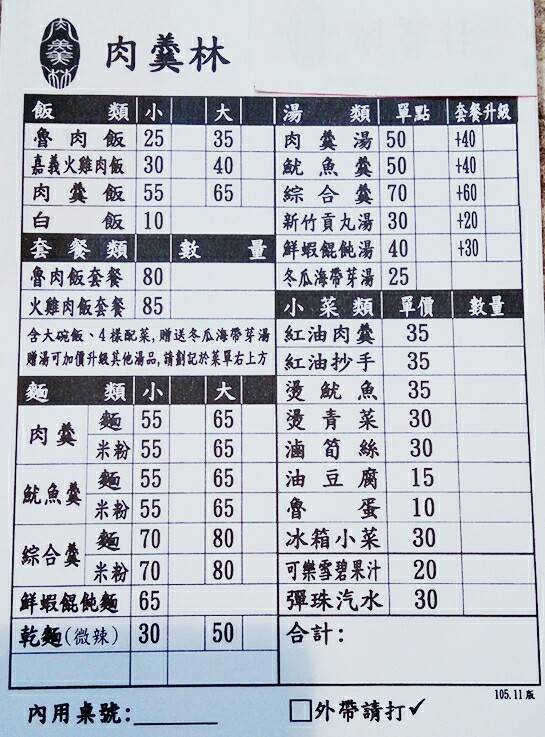 肉羹林
肉羹林
飯類 小 大
魯肉飯 25 35
嘉義火雞肉飯 30 40
肉羹飯 55 65
白飯 10
套餐類 數量
魯肉飯套餐 80
火雞肉飯套餐 85
含大碗飯、4樣配菜,贈送冬瓜海帶芽湯
贈湯可加價升級其他湯品,請劃記於菜單右上方
麵類 小 大
肉羹 麵 55 65
米粉 55 65
魷魚羹 麵 55 65
米粉 55 65
綜合羹 麵 70 80
米粉 70 80
鮮蝦餛飩麵 65
乾麵(微辣) 30 50
湯類 單點 套餐升級
肉羹湯 50 +40
魷魚羹 50 +40
綜合羹 70 +60
新竹貢丸湯 30 +20
鮮蝦餛飩湯 40 +30
冬瓜海帶芽湯 25
小菜類 單價 數量
紅油肉羹 35
紅油抄手 35
燙魷魚 35
燙青菜 30
滷筍絲 30
油豆腐 15
魯蛋 10
冰箱小菜 30
可樂雪碧果汁 20
彈珠汽水 30
合計:
105.11版
內用桌號:
□外帶請打✓